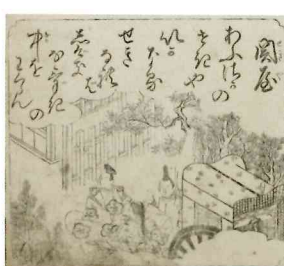 関屋
あふさかの
せきや
いかなる
せき
なれば
しげき
なげきの
中を
わくらん